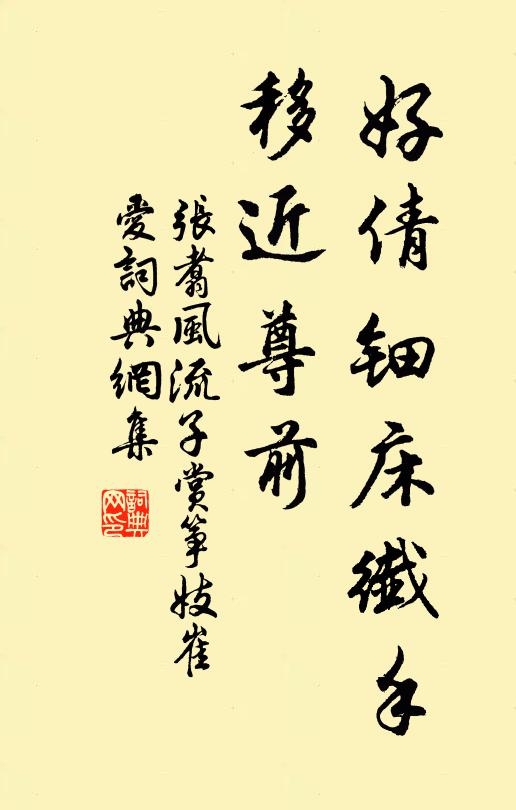 好倩钿床纖手
移近尊前
張翥風流子賞筝妓崔
愛詞典網集
詞典网印